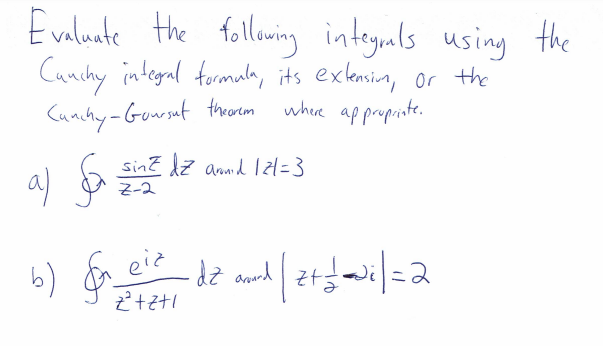 Evaluate the following integrals using the
Cauchy integral formula, its extension, or the
Cauchy-Goursat theorem where appropriate.
a) ∮ sinz/(z-2) dz around |z|=3
b) ∮ e^{iz}/(z²+z+1) dz around |z+1/2-2i|=2